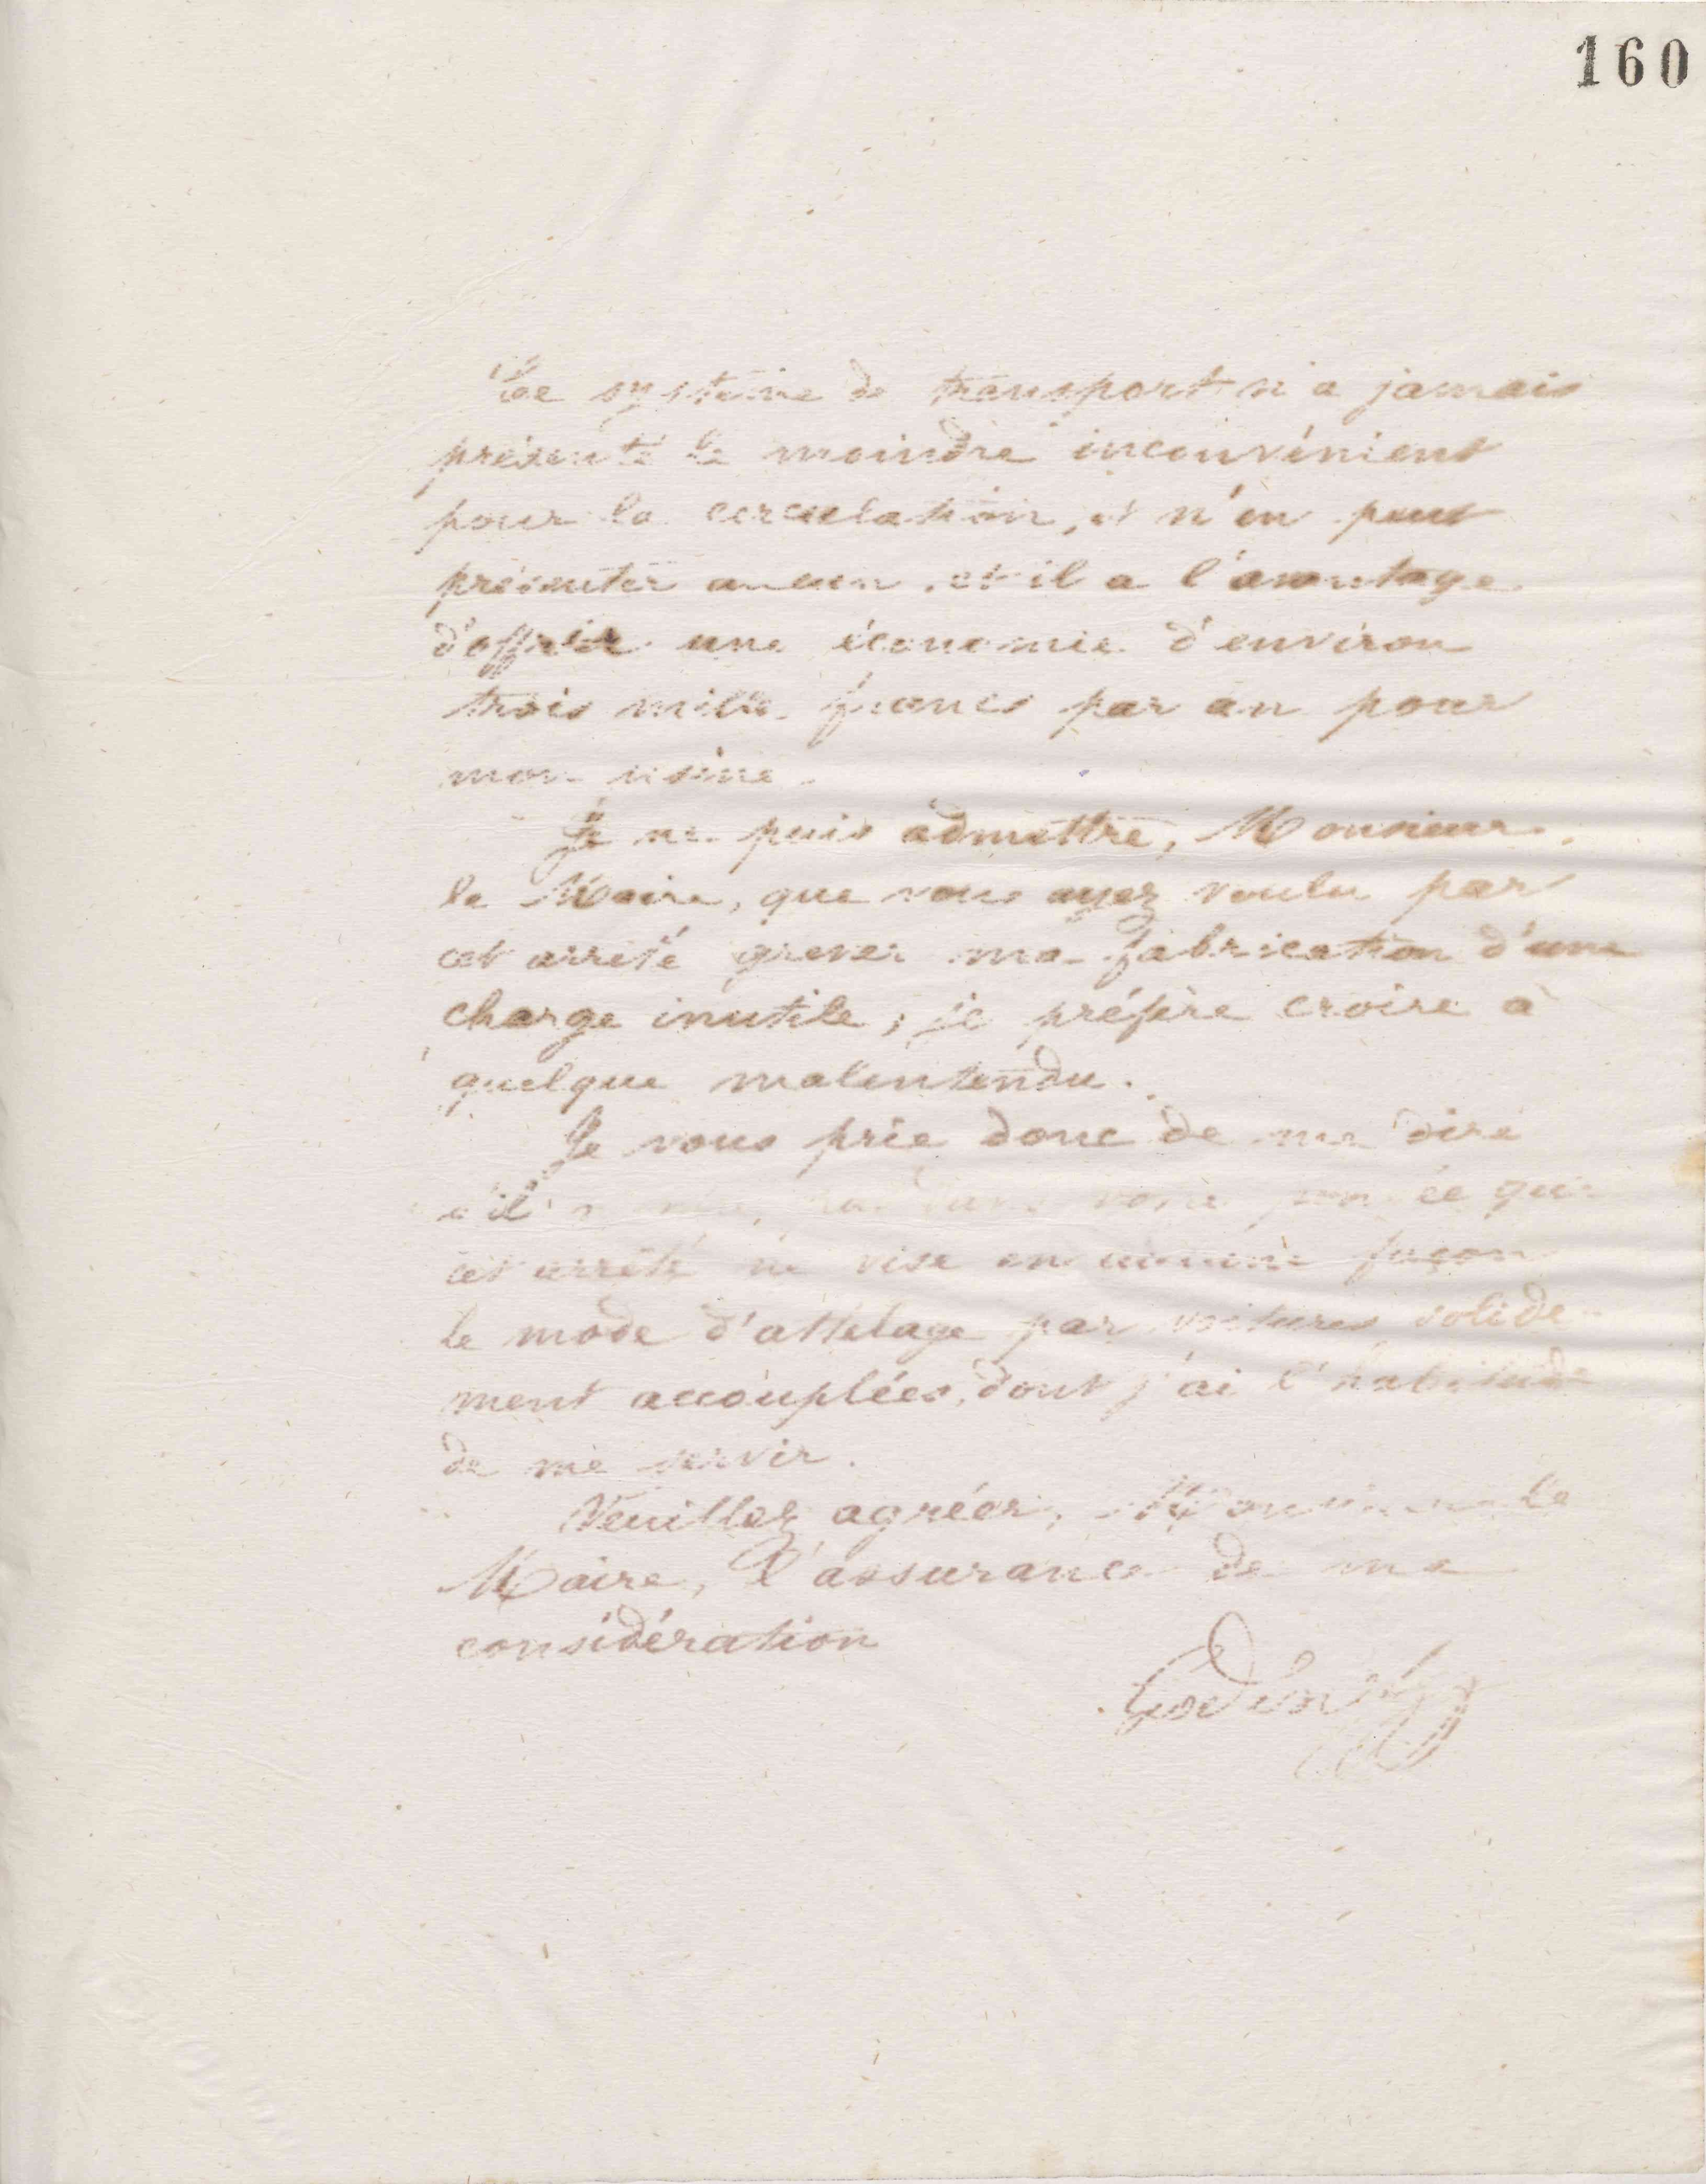 160
Ce système de transport n'a jamais
présenté le moindre inconvénient
pour la circulation, et n'en peut
présenter aucun, et il a l'avantage
d'offrir une économie d'environ
trois mille francs par an pour
mon usine.
Je ne puis admettre, Monsieur
le Maire, que vous ayez voulu par
cet arrêté grever ma fabrication d'une
charge inutile ; je préfère croire à
quelque malentendu.
Je vous prie donc de me dire
s'il dans votre pensée que
cet arrêté ne vise en aucune façon
le mode d'attelage par voitures solide-
ment accouplées, dont j'ai l'habitude
de me servir.
Veuillez agréer, Monsieur le
Maire, l'assurance de ma
considération
Godin